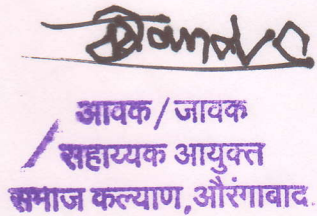 आवक / जावक
सहाय्यक आयुक्त
समाज कल्याण, औरंगाबाद.